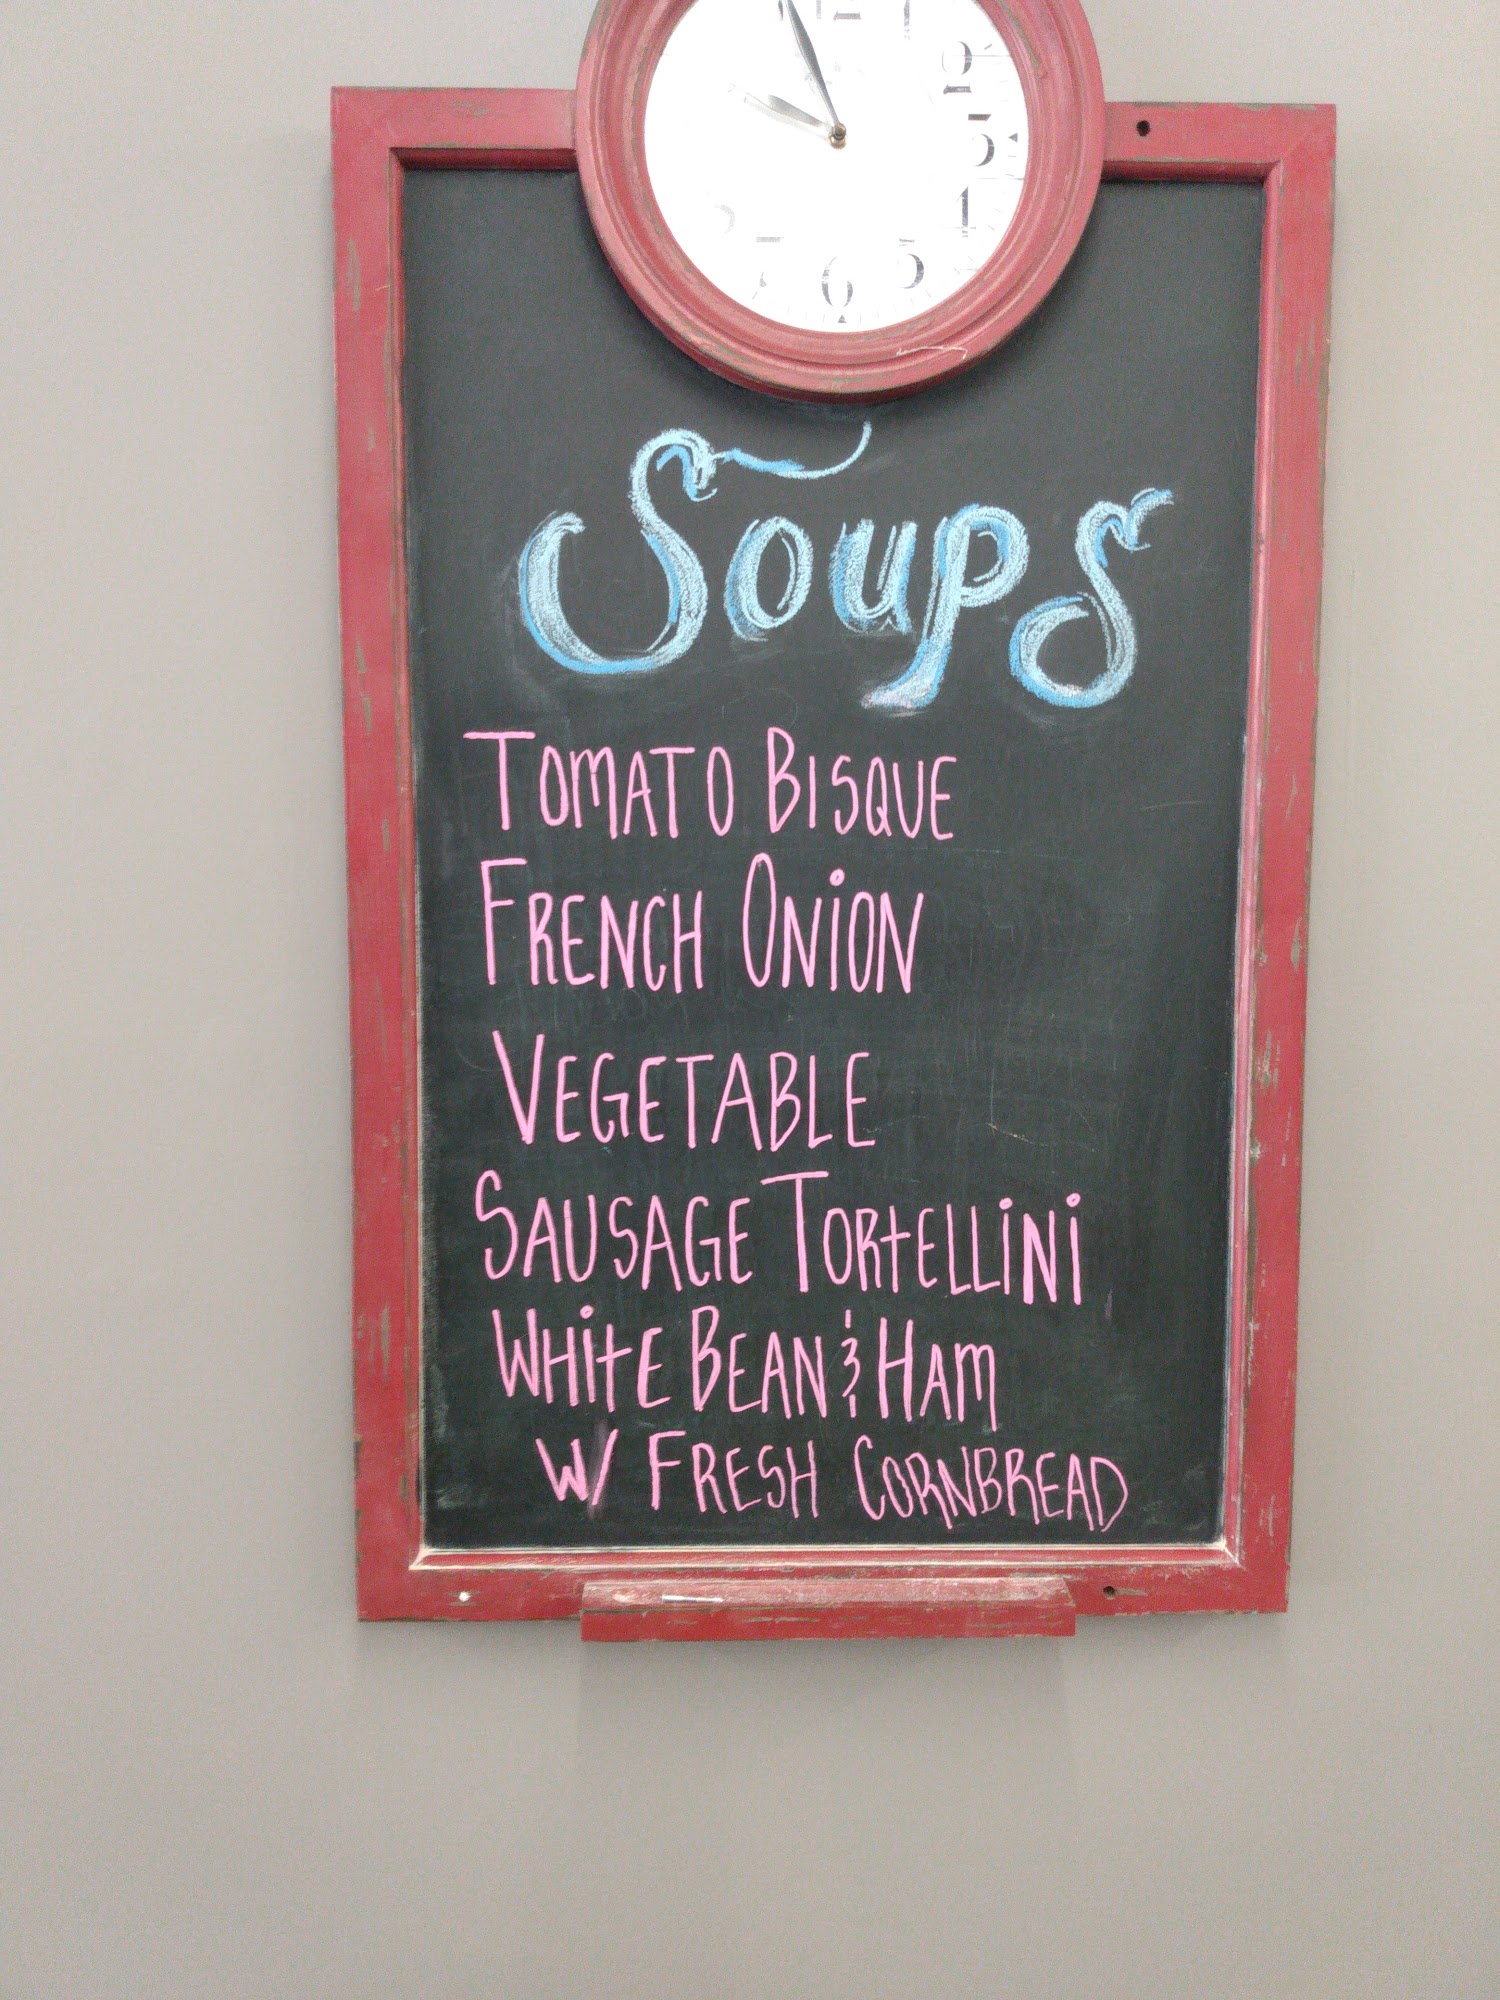 Soups
TOMATO BISQUE
FRENCH ONION
VEGETABLE
SAUSAGE TORTELLINI
WHITE BEAN & HAM
W/ FRESH CORNBREAD